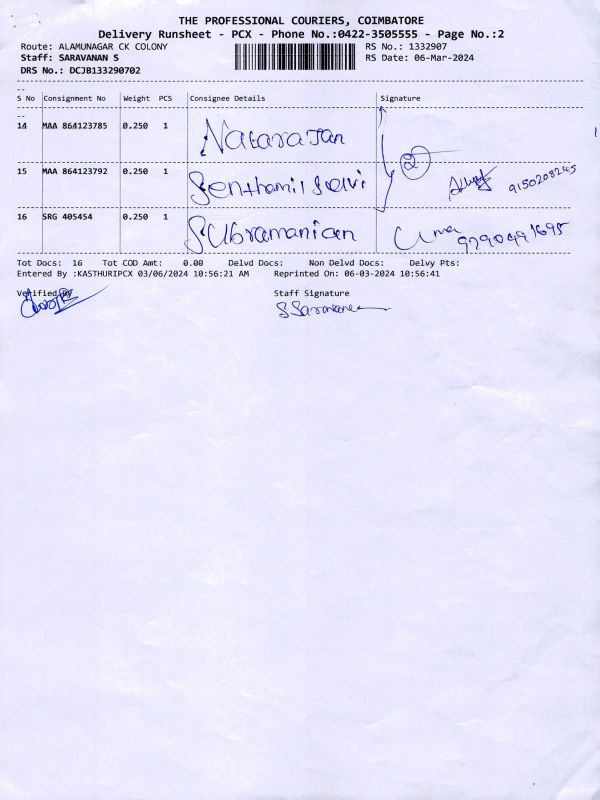 THE PROFESSIONAL COURIERS, COIMBATORE
Delivery Runsheet - PCX - Phone No.:0422-3505555 - Page No.:2
Route: ALAMUNAGAR CK COLONY
RS No.: 1332907
Staff: SARAVANAN S
RS Date: 06-Mar-2024
DRS No.: DCJB133290702
S No Consignment No Weight PCS Consignee Details Signature
14 MAA 864123785 0.250 1 Natarajan
2
15 MAA 864123792 0.250 1 Senthamil Selvi 9150208245
16 SRG 405454 0.250 1 Subramanian Uma 9790491695
Tot Docs: 16 Tot COD Amt: 0.00 Delvd Docs: Non Delvd Docs: Delvy Pts:
Entered By :KASTHURIPCX 03/06/2024 10:56:21 AM Reprinted On: 06-03-2024 10:56:41
Verified By
Staff Signature
S Saravana